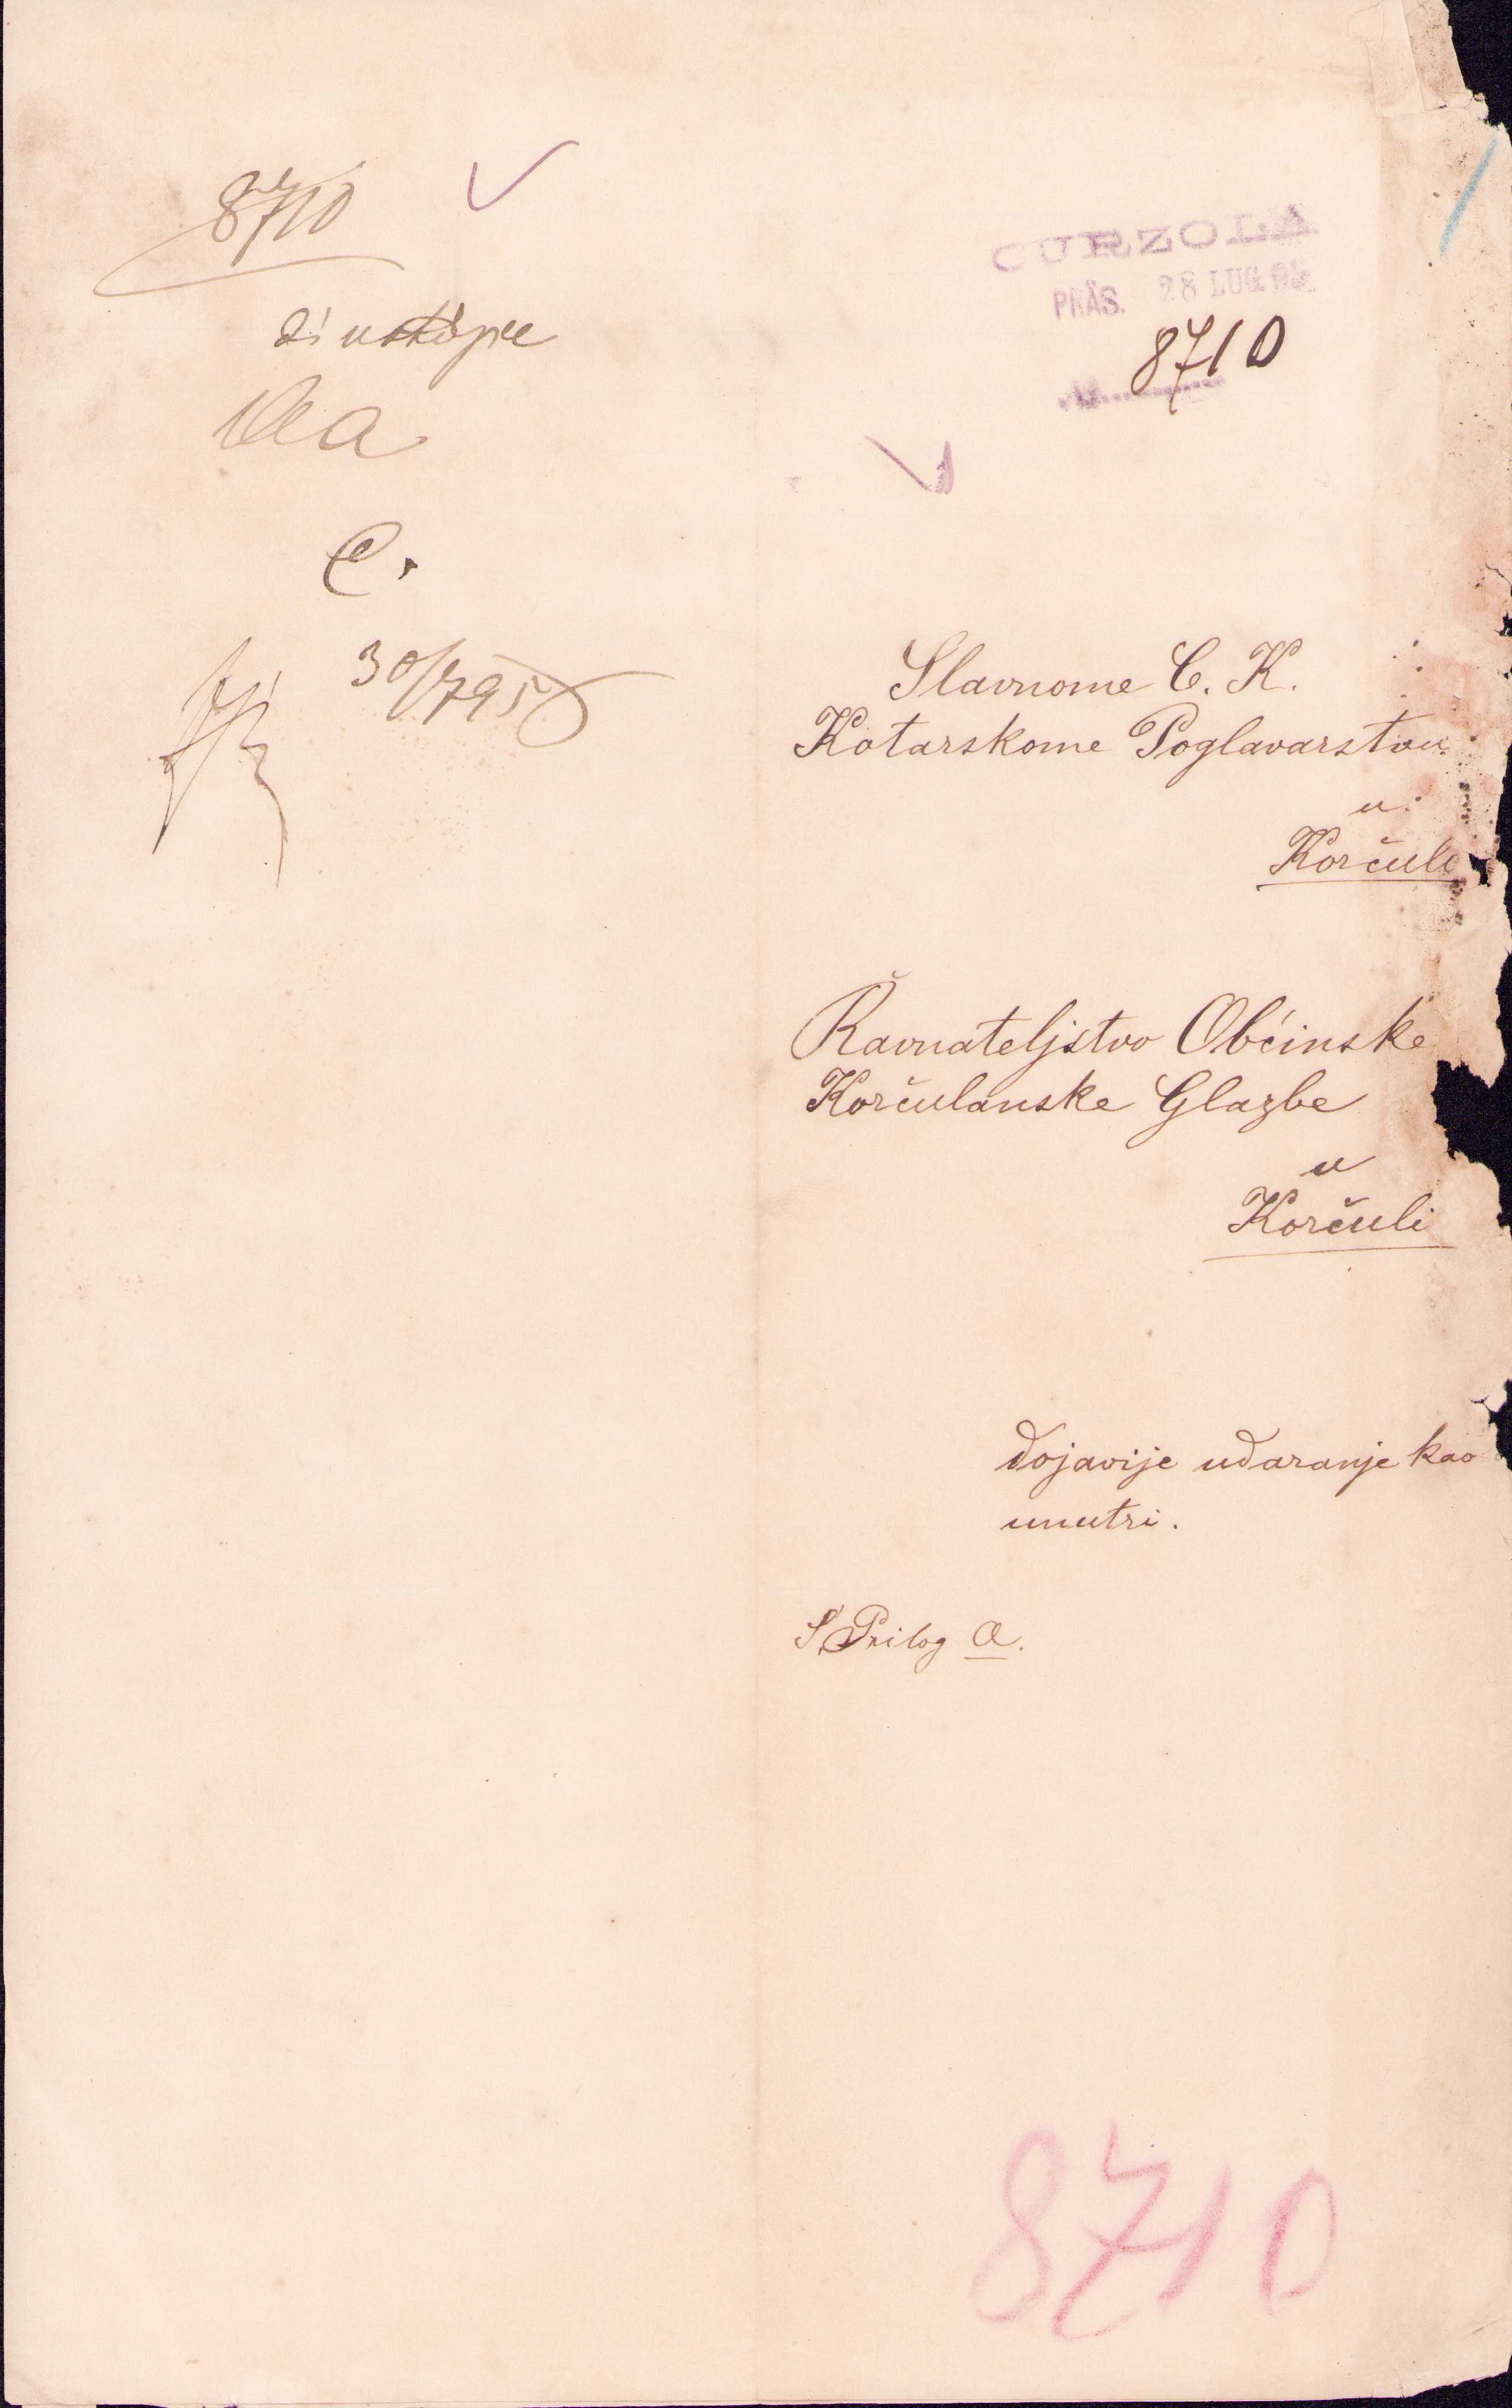 8710
CURZOLA
PRÄS. 28 LUG. 95
8710
30/7 95
Slavnome C. K.
Kotarskome Poglavarstvu
u
Korčuli
Ravnateljstvo Občinske
Korčulanske Glazbe
u
Korčuli
dojavije udaranje kao
unutri.
S. Prilog A.
8710